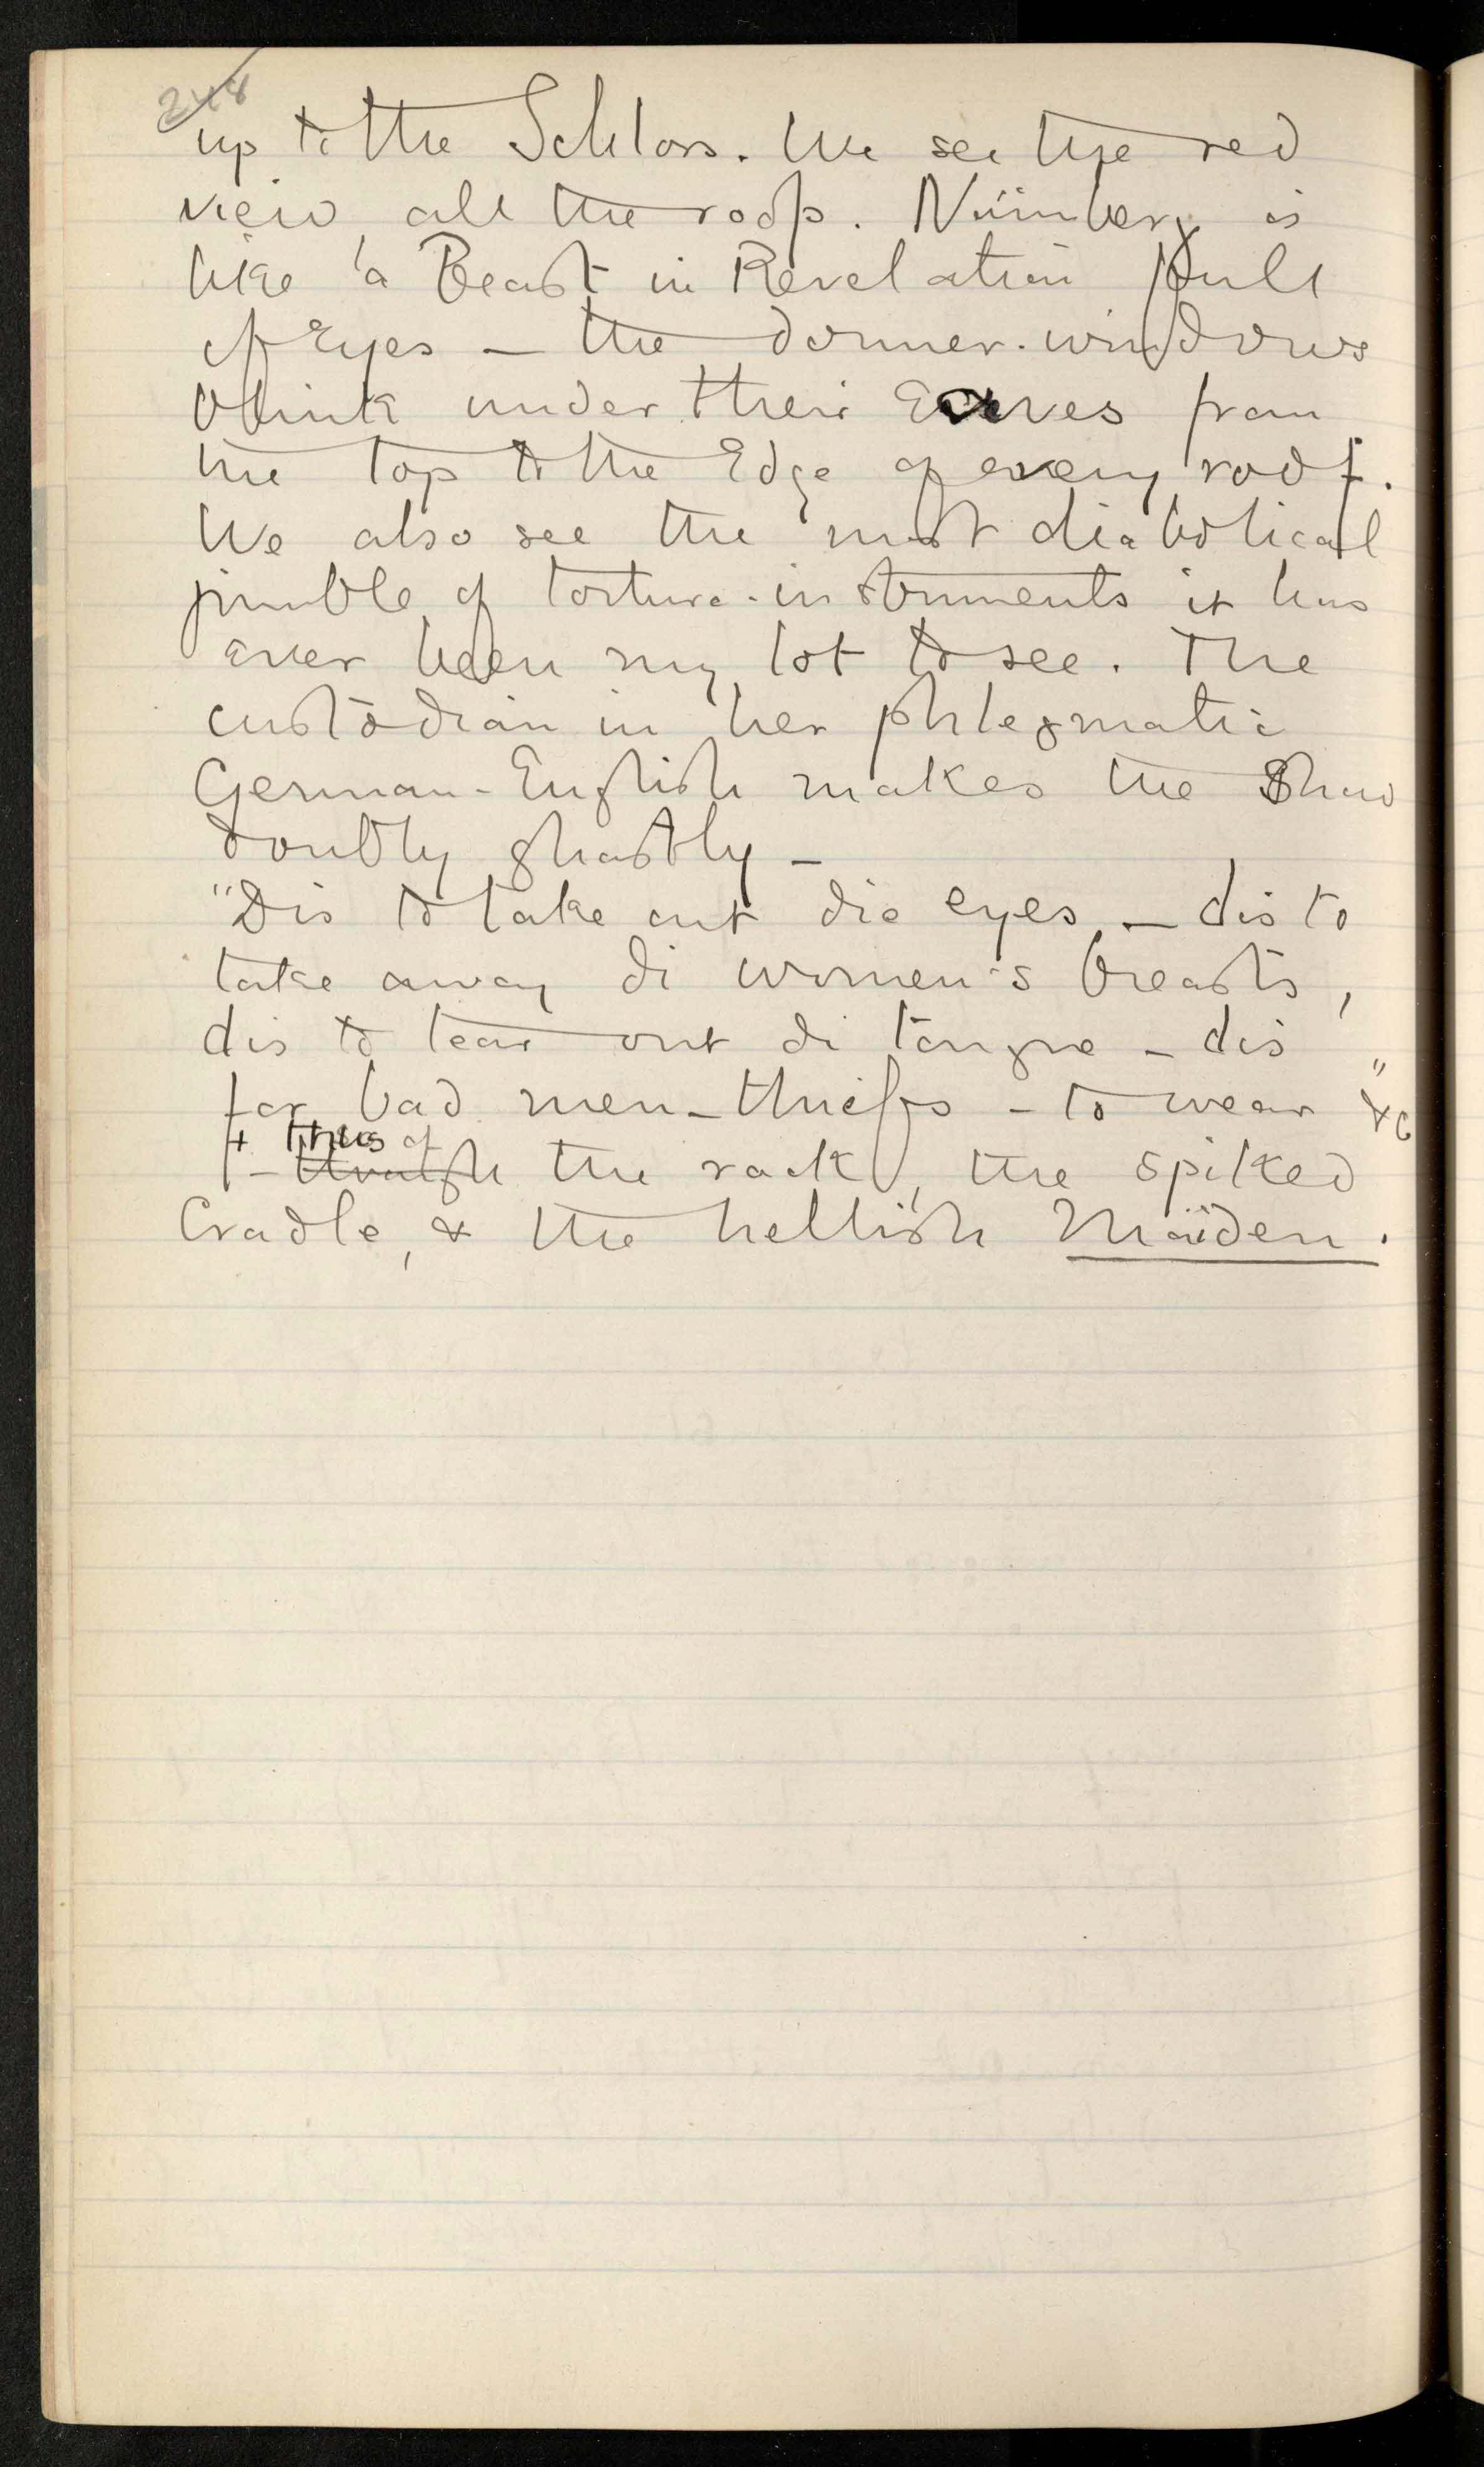 248
up to the Schloss. We see the red
view all the roofs. Nürnberg is
like a Beast in Revelation full
of Eyes — the dormer-windows
blink under their Eaves from
the top to the Edge of every roof.
We also see the most diabolical
jumble of torture-instruments it has
ever been my lot to see. The
custodian in her phlegmatic
German-English makes the Show
doubly ghastly —
"Dis to take out die eyes, — dis to
take away di women's breasts,
dis to tear out di tongue — dis
for bad men — thiefs — to wear" &c
+ thus of
— through the rack, the spiked
Cradle, & the hellish Maiden.